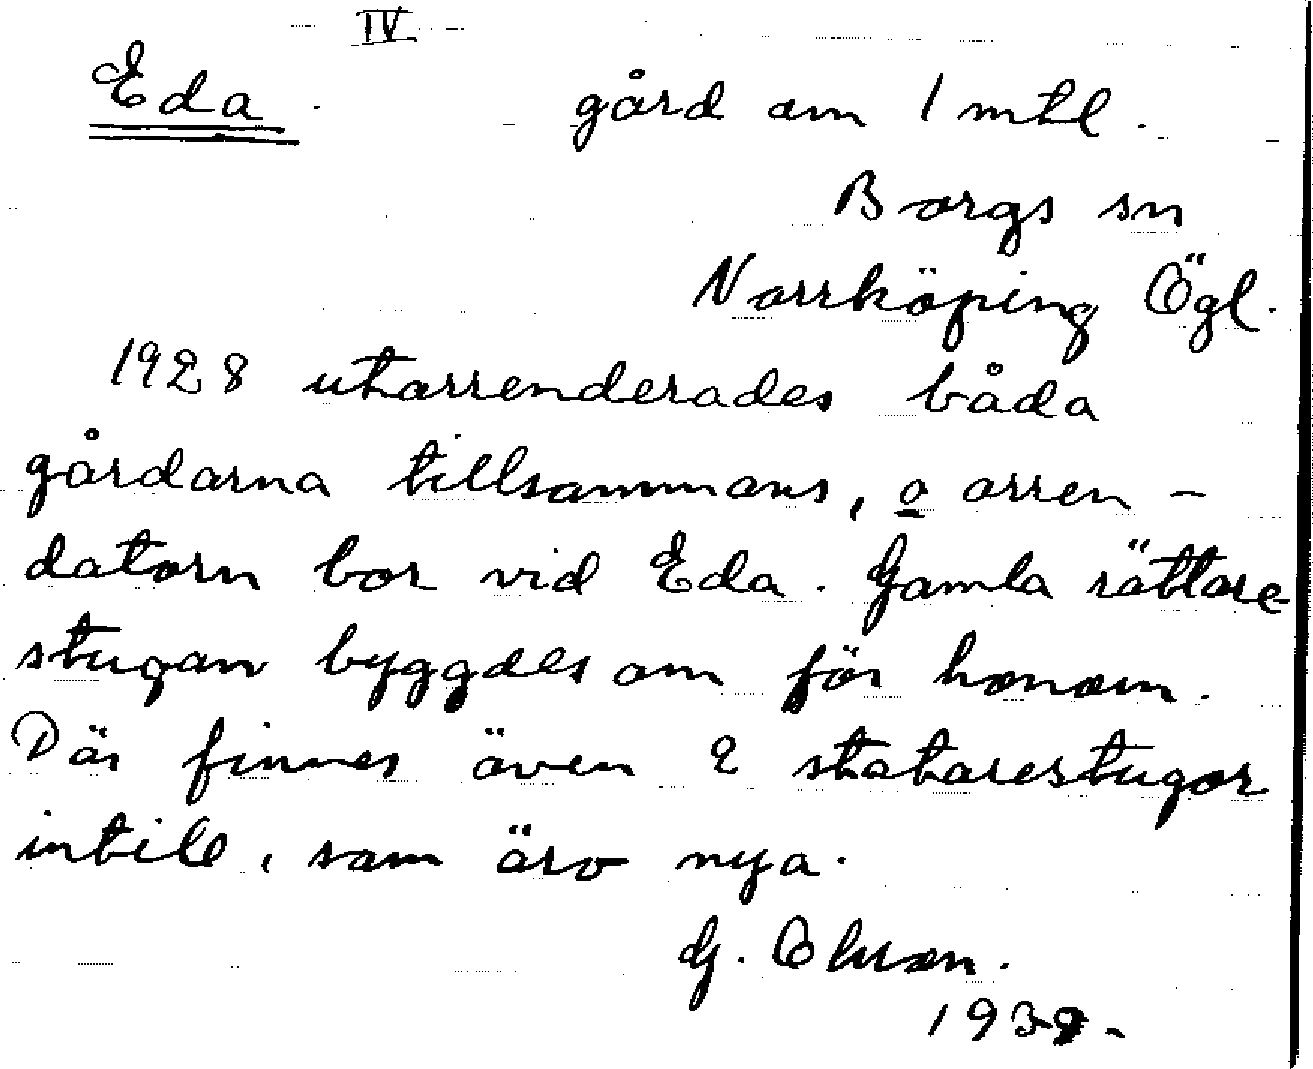 IV
Eda. gård om 1 mtl.
Borgs sn
Norrköping Ögl.
1928 utarrenderades båda
gårdarna tillsammans, o arren-
datorn bor vid Eda. Gamla rättare
stugan byggdes om för honom.
Där finnes även 2 statarestugor
intill, som äro nya.
G. Olsson.
1939.